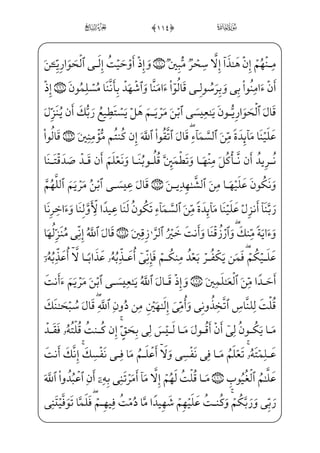 الجزء السابع ﴿١١٤﴾ سورة المائدة
مِنْهُمْ إِنْ هَٰذَآ إِلَّا سِحْرٌ مُّبِينٌ ۝ وَإِذْ أَوْحَيْتُ إِلَى ٱلْحَوَارِيِّـۧنَ
أَنْ ءَامِنُوا۟ بِى وَبِرَسُولِى قَالُوٓا۟ ءَامَنَّا وَٱشْهَدْ بِأَنَّنَا مُسْلِمُونَ ۝ إِذْ
قَالَ ٱلْحَوَارِيُّونَ يَـٰعِيسَى ٱبْنَ مَرْيَمَ هَلْ يَسْتَطِيعُ رَبُّكَ أَن يُنَزِّلَ
عَلَيْنَا مَآئِدَةً مِّنَ ٱلسَّمَآءِ ۖ قَالَ ٱتَّقُوا۟ ٱللَّهَ إِن كُنتُم مُّؤْمِنِينَ ۝ قَالُوا۟
نُرِيدُ أَن نَّأْكُلَ مِنْهَا وَتَطْمَئِنَّ قُلُوبُنَا وَنَعْلَمَ أَن قَدْ صَدَقْتَنَا
وَنَكُونَ عَلَيْهَا مِنَ ٱلشَّـٰهِدِينَ ۝ قَالَ عِيسَى ٱبْنُ مَرْيَمَ ٱللَّهُمَّ
رَبَّنَآ أَنزِلْ عَلَيْنَا مَآئِدَةً مِّنَ ٱلسَّمَآءِ تَكُونُ لَنَا عِيدًا لِّأَوَّلِنَا وَءَاخِرِنَا
وَءَايَةً مِّنكَ ۖ وَٱرْزُقْنَا وَأَنتَ خَيْرُ ٱلرَّٰزِقِينَ ۝ قَالَ ٱللَّهُ إِنِّى مُنَزِّلُهَا
عَلَيْكُمْ ۖ فَمَن يَكْفُرْ بَعْدُ مِنكُمْ فَإِنِّىٓ أُعَذِّبُهُۥ عَذَابًا لَّآ أُعَذِّبُهُۥٓ
أَحَدًا مِّنَ ٱلْعَـٰلَمِينَ ۝ وَإِذْ قَالَ ٱللَّهُ يَـٰعِيسَى ٱبْنَ مَرْيَمَ ءَأَنتَ
قُلْتَ لِلنَّاسِ ٱتَّخِذُونِى وَأُمِّىَ إِلَـٰهَيْنِ مِن دُونِ ٱللَّهِ ۖ قَالَ سُبْحَـٰنَكَ
مَا يَكُونُ لِىٓ أَنْ أَقُولَ مَا لَيْسَ لِى بِحَقٍّ ۚ إِن كُنتُ قُلْتُهُۥ فَقَدْ
عَلِمْتَهُۥ ۚ تَعْلَمُ مَا فِى نَفْسِى وَلَآ أَعْلَمُ مَا فِى نَفْسِكَ ۚ إِنَّكَ أَنتَ
عَلَّـٰمُ ٱلْغُيُوبِ ۝ مَا قُلْتُ لَهُمْ إِلَّا مَآ أَمَرْتَنِى بِهِۦٓ أَنِ ٱعْبُدُوا۟ ٱللَّهَ
رَبِّى وَرَبَّكُمْ ۚ وَكُنتُ عَلَيْهِمْ شَهِيدًا مَّا دُمْتُ فِيهِمْ ۖ فَلَمَّا تَوَفَّيْتَنِى